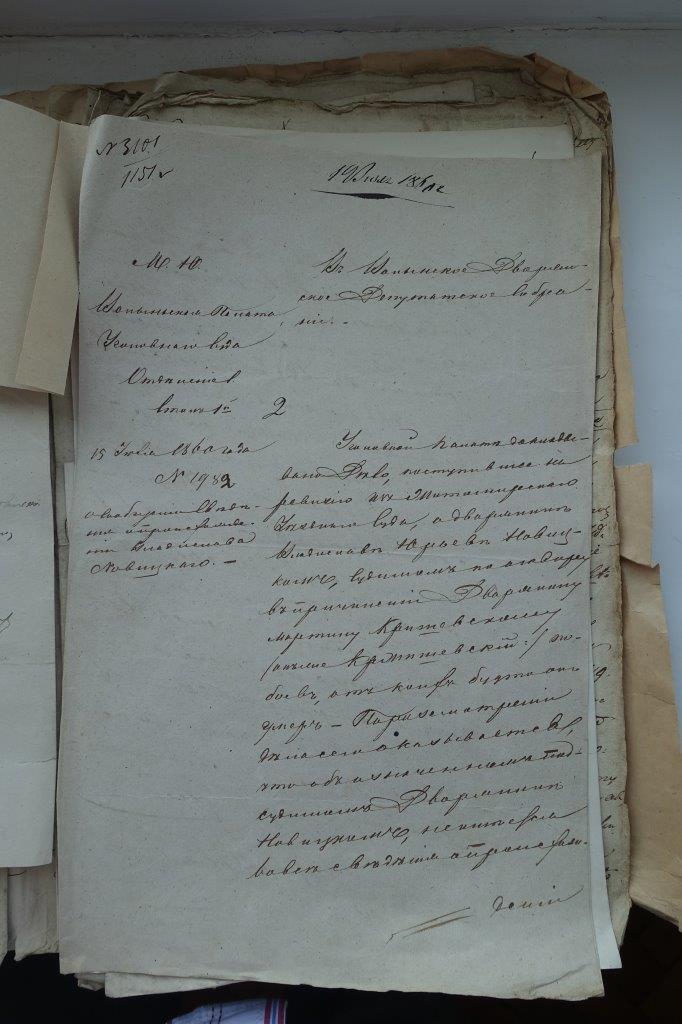 № 3101
1151
19 Июля 1860
М. Ю.
Волынская Палата
Уголовнаго Суда
Отделение
второе
2
15 Июля 1860 года
№ 1982
о собрании сведе-
ния о происхожде-
нии Владислава
Новицкаго. —
В Волынское Дворян-
ское Депутатское Собра-
ние.
Уголовной Палате доклады-
вано Дело, поступившее на
ревизию из Житомирского
Уезднаго Суда, о дворянине
Владиславе Юрьеве Новиц-
ком, судимом по оговору
в причинении Дворянину
Мартину Критовскому
/он же Кржитевский:/ по-
боев, от коих будто он
умер — По рассмотрении
дела сего оказывается,
что об означенном под-
судимом Дворянине
Новицком, не имеется
вовсе сведения о происхож-
дении